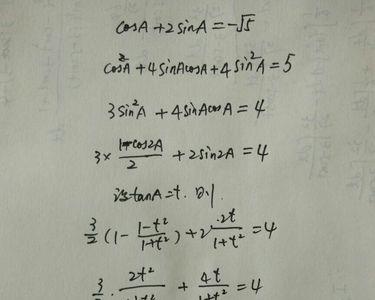 cosA + 2sinA = -√5
cos²A + 4sinAcosA + 4sin²A = 5
3sin²A + 4sinAcosA = 4
3 × (1-cos2A)/2 + 2sin2A = 4
设tanA = t. 则
3/2 (1 - (1-t²)/(1+t²)) + 2·2t/(1+t²) = 4
3/2 · 2t²/(1+t²) + 4t/(1+t²) = 4